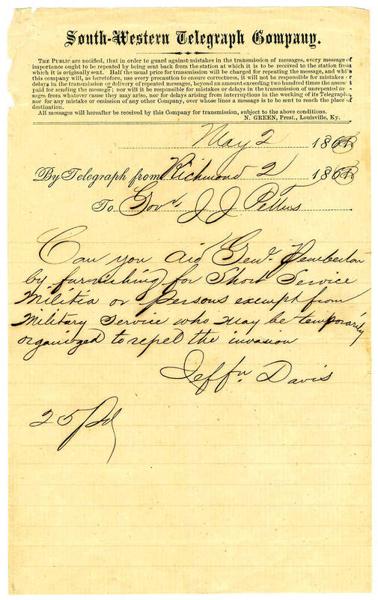 South-Western Telegraph Company.
THE PUBLIC are notified, that in order to guard against mistakes in the transmission of messages, every message of
importance ought to be repeated by being sent back from the station at which it is to be received to the station from
which it is originally sent. Half the usual price for transmission will be charged for repeating the message, and while
this company will, as heretofore, use every precaution to ensure correctness, it will not be responsible for mistakes or
delays in the transmission or delivery of repeated messages, beyond an amount exceeding two hundred times the amount
paid for sending the message; nor will it be responsible for mistakes or delays in the transmission of unrepeated mes-
sages from whatever cause they may arise, nor for delays arising from interruptions in the working of its Telegraph,
nor for any mistake or omission of any other Company, over whose lines a message is to be sent to reach the place of
destination.
All messages will hereafter be received by this Company for transmission, subject to the above conditions.
N. GREEN, Prest., Louisville, Ky.
May 2 1863
By Telegraph from Richmond 2 1863
To Govr J J Pettus
Can you aid Genl Pemberton
by furnishing for Short Service
Militia or persons exempt from
Military Service who may be temporarily
organized to repel the invasion
Jeffn Davis
25 Pd